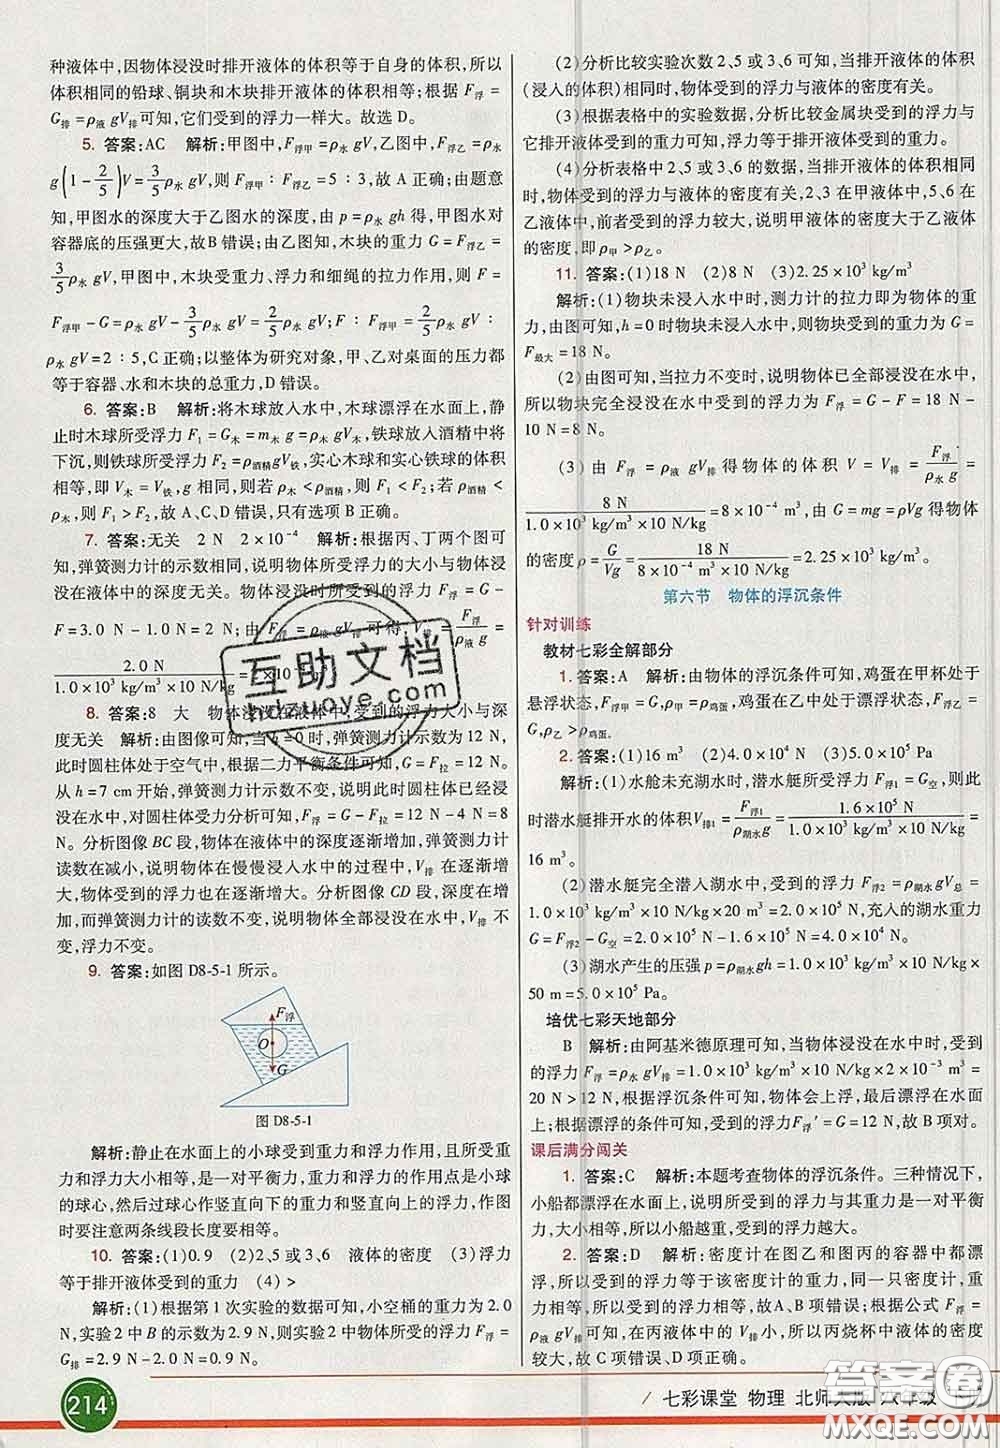 种液体中,因物体浸没时排开液体的体积等于自身的体积,所以
体积相同的铅球、铜块和木块排开液体的体积相等;根据 F浮
= G排=ρ液 gV排可知,它们受到的浮力一样大。故选 D。
5. 答案:AC 解析:甲图中,F浮甲 = ρ水 gV,乙图中,F浮乙 = ρ水
g(1 - 2/5)V = 3/5 ρ水 gV,所以 F浮甲 : F浮乙 = 5 : 3,故 A 正确;由题意
知,甲图水的深度大于乙图水的深度,由 p = ρ水 gh 得,甲图水对
容器底的压强更大,故 B 错误;由乙图知,木块的重力 G = F浮乙 =
3/5 ρ水 gV,甲图中,木块受重力、浮力和细绳的拉力作用,则 F =
F浮甲 - G = ρ水 gV - 3/5 ρ水 gV = 2/5 ρ水 gV;F : F浮甲 = 2/5 ρ水 gV :
ρ水 gV = 2 : 5,C 正确;以整体为研究对象,甲、乙对桌面的压力都
等于容器、水和木块的总重力,D 错误。
6. 答案:B 解析:将木球放入水中,木球漂浮在水面上,静
止时木球所受浮力 F1 = G木 = m木 g = ρ木 gV木,铁球放入酒精中将
下沉,则铁球所受浮力 F2 = ρ酒精gV铁,实心木球和实心铁球的体积
相等,即 V木 = V铁,g 相同,则若 ρ木 < ρ酒精,则 F1 < F2;若 ρ酒精 <
ρ木,则 F1 > F2。故 A、C、D 错误,只有选项 B 正确。
7. 答案:无关 2 N 2 × 10⁻⁴ 解析:根据丙、丁两个图可
知,弹簧测力计的示数相同,说明物体所受浮力的大小与物体浸
没在液体中的深度无关。物体浸没时,受到的浮力 F浮 = G -
F = 3.0 N - 1.0 N = 2 N;由 F浮 = ρ液 gV排 可得,V排 = F浮/ρ液 g =
2.0 N/1.0 × 10³ kg/m³ × 10 N/kg
8. 答案:8 大 物体浸没在液体中,受到的浮力大小与深
度无关 解析:由图像可知,当 h = 0 时,弹簧测力计示数为 12 N,
此时圆柱体处于空气中,根据二力平衡条件可知,G = F拉 = 12 N;
从 h = 7 cm 开始,弹簧测力计示数不变,说明此时圆柱体已经浸
没在水中,对圆柱体受力分析可知,F浮 = G - F拉 = 12 N - 4 N =
8 N。分析图像 BC 段,物体在液体中的深度逐渐增加,弹簧测力计
读数在减小,说明物体在慢慢浸入水中的过程中,V排 在逐渐增
大,物体受到的浮力也在逐渐增大。分析图像 CD 段,深度在增
加,而弹簧测力计的读数不变,说明物体全部浸没在水中,V排 不
变,浮力不变。
9. 答案:如图 D8-5-1 所示。
F浮
O
G
图 D8-5-1
解析:静止在水面上的小球受到重力和浮力作用,且所受重
力和浮力的作用,是一对平衡力,重力和浮力的作用点是小球
的球心,然后过球心作竖直向下的重力和竖直向上的浮力,作图
时要注意两条线段长度要相等。
10. 答案:(1)0.9 (2)2、5 或 3、6 液体的密度 (3)浮力
等于排开液体受到的重力 (4) >
解析:(1)根据第 1 次实验的数据可知,小空桶的重力为 2.0
N,实验 2 中 B 的示数为 2.9 N,则实验 2 中物体所受的浮力 F浮 =
G排 = 2.9 N - 2.0 N = 0.9 N。
(2)分析比较实验次数 2、5 或 3、6 可知,当排开液体的体积
(浸入的体积)相同时,物体受到的浮力与液体的密度有关。
(3)根据表格中的实验数据,分析比较金属块受到的浮力与
它排开液体受到的重力可知,浮力等于排开液体受到的重力。
(4)分析表格中 2、5 或 3、6 的数据,当排开液体的体积相同
时,物体受到的浮力与液体的密度有关,2、3 在甲液体中,5、6 在
乙液体中,前者受到的浮力较大,说明甲液体的密度大于乙液体
的密度,即 ρ甲 > ρ乙。
11. 答案:(1)18 N (2)8 N (3)2.25 × 10³ kg/m³
解析:(1)物块未浸入水中时,测力计的拉力即为物体的重
力,由图可知,h = 0 时物块未浸入水中,则物块受到的重力为 G =
F最大 = 18 N。
(2)由图可知,当拉力不变时,说明物体已全部浸没在水中,
所以物块完全浸没在水中受到的浮力为 F浮 = G - F = 18 N -
10 N = 8 N。
(3)由 F浮 = ρ液 gV排 得物体的体积 V = V排 = F浮/ρ水 g =
8 N/1.0 × 10³ kg/m³ × 10 N/kg = 8 × 10⁻⁴ m³,由 G = mg = ρVg 得物体
的密度 ρ = G/Vg = 18 N/8 × 10⁻⁴ m³ × 10 N/kg = 2.25 × 10³ kg/m³。
第六节 物体的浮沉条件
针对训练
教材七彩全解部分
1. 答案:A 解析:由物体的浮沉条件可知,鸡蛋在甲杯处于
悬浮状态,F浮甲 = G,ρ甲 = ρ鸡蛋,鸡蛋在乙中处于漂浮状态,F浮乙 =
G,ρ乙 > ρ鸡蛋。
2. 答案:(1)16 m³ (2)4.0 × 10⁴ N (3)5.0 × 10⁵ Pa
解析:(1)水舱未充湖水时,潜水艇所受浮力 F浮1 = G空,则此
时潜水艇排开水的体积V排1 = F浮1/ρ湖水g = 1.6 × 10⁵ N/1.0 × 10³ kg/m³ × 10 N/kg =
16 m³。
(2)潜水艇完全潜入湖水中,受到的浮力 F浮2 = ρ湖水 gV总 =
1.0 × 10³ kg/m³ × 10 N/kg × 20 m³ = 2.0 × 10⁵ N,充入的湖水重力
G = F浮2 - G空 = 2.0 × 10⁵ N - 1.6 × 10⁵ N = 4.0 × 10⁴ N。
(3)湖水产生的压强 p = ρ湖水gh = 1.0 × 10³ kg/m³ × 10 N/kg ×
50 m = 5.0 × 10⁵ Pa。
培优七彩天地部分
B 解析:由阿基米德原理可知,当物体浸没在水中时,受到
的浮力 F浮 = ρ水 gV排 = 1.0 × 10³ kg/m³ × 10 N/kg × 2 × 10⁻³ m³ =
20 N > 12 N,根据浮沉条件可知,物体会上浮,最后漂浮在水面
上;根据漂浮的条件可知,受到的浮力 F浮′ = G = 12 N,故 B 项对。
课后满分闯关
1. 答案:C 解析:本题考查物体的浮沉条件。三种情况下,
小船都漂浮在水面上,说明所受的浮力与其重力是一对平衡
力,大小相等,所以小船越重,受到的浮力越大。
2. 答案:D 解析:密度计在图乙和图丙的容器中都漂
浮,所以受到的浮力等于该密度计的重力,同一只密度计,重力
相等,所以受到的浮力相等,故 A、B 项错误;根据公式 F浮 =
ρ液 gV排可知,在丙液体中的 V排 小,所以丙烧杯中液体的密度
较大,故 C 项错误、D 项正确。
互助文档
hdzuoye.com
214
七彩课堂 物理 北师大版 八年级
答案圈
MXQE.COM